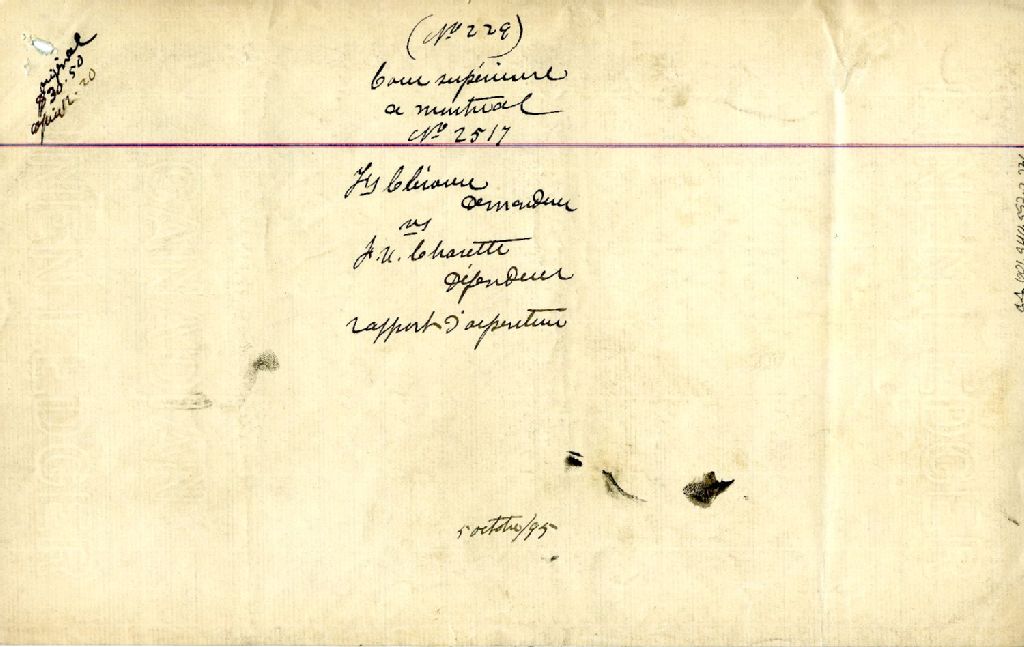 original
$30.50
copie 12.20
(No 229)
Cour supérieure
a montreal
No 2517
Demandeur
vs
J. U. Charette
Défendeur
rapport d'arpenteur
5 octobre/95